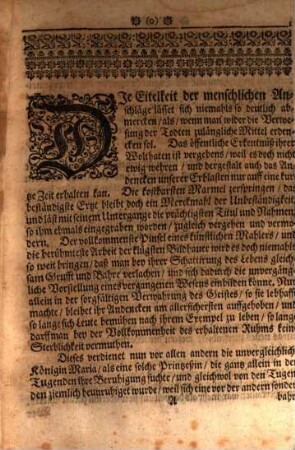 (o)
DJe Eitelkeit der menschlichen An-
schläge lässet sich niemahls so deutlich ab-
mercken / als / wenn man wider die Verwe-
sung der Todten zulängliche Mittel erden-
cken sol. Das öffentliche Erkentnüß ihrer
Wolthaten ist vergebens / weil es doch nicht
ewig währen / und dergestalt auch das An-
dencken unserer Erblasten nur auff eine kur-
tze Zeit erhalten kan. Die kostbarsten Marmel zerspringen / das
beständigste Ertze bleibt doch ein Merckmahl der Unbeständigkeit,
und läst mit seinem Untergange die prächtigsten Titul und Nahmen,
so ihm ehmals eingegraben worden / zugleich vergehen und vermo-
dern. Der vollkommenste Pinsel eines künstlichen Mahlers / und
die berühmteste Arbeit der klügsten Bildhauer wird es doch niemahls
so weit bringen / daß man bey ihrer Schattirung des Lebens gleich-
sam Grufft und Bahre verlachen / und sich dadurch die unvergäng-
liche Vorstellung eines vergangenen Wesens einbilden könne. Nur
allein in der sorgfältigen Verwahrung des Geistes / so sie lebhafft
machte / bleibet ihr Andencken am allersichersten auffgehoben / und
so lange sich Leute bemühen nach ihrem Exempel zu leben / so lange
darff man bey der Vollkommenheit des erhaltenen Ruhms keine
Sterblichkeit vermuthen.
Dieses verdienet nun vor allen andern die unvergleichliche
Königin Maria / als eine solche Prinzeßin / die gantz allein in den
Tugenden ihre Beruhigung suchte / und gleichwol von den Tugen-
den ziemlich beunruhiget wurde / weil sich eine vor der andern sonder-
A bahr